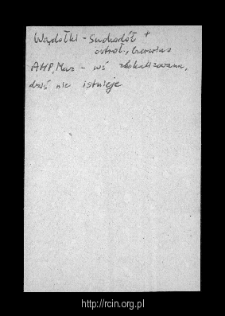 Wądołki - Suchodół +
ostroł., Czerwin
AHP, Maz - wś zlokalizowana,
dziś nie istnieje
http://rcin.org.pl